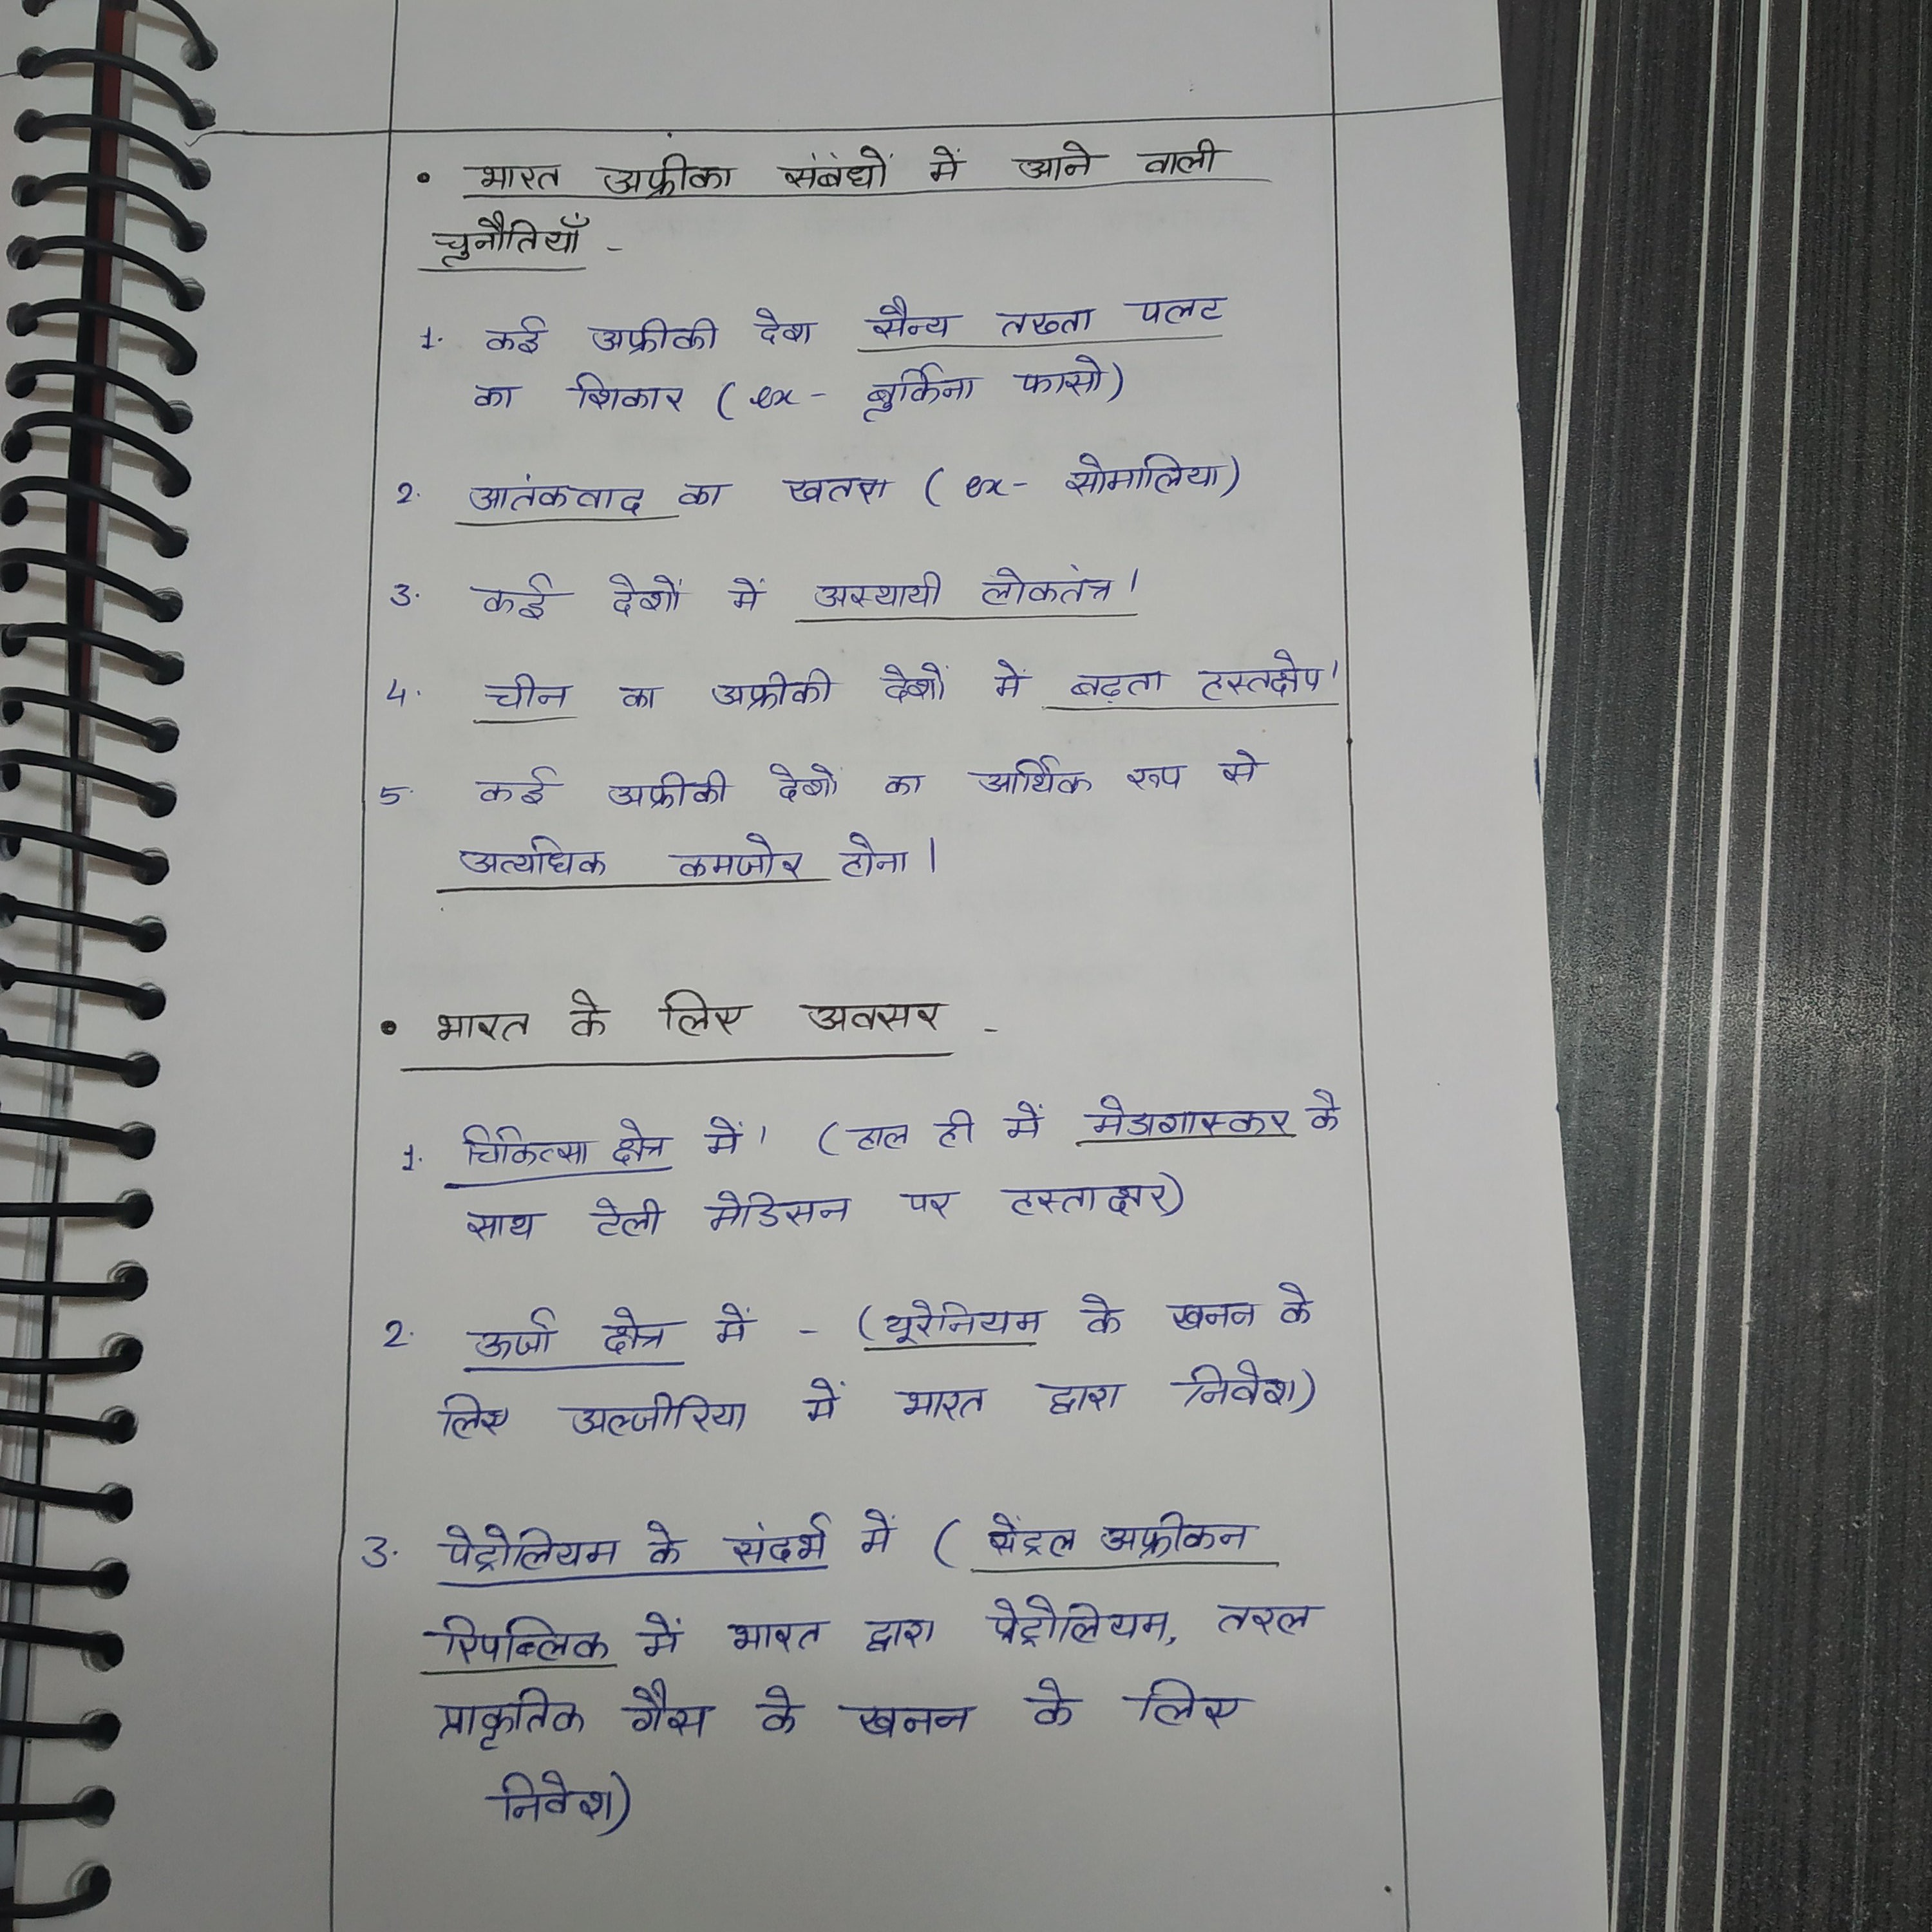 • भारत अफ्रीका संबंधों में आने वाली
चुनौतियाँ -
1. कई अफ्रीकी देश सैन्य तख्ता पलट
का शिकार ( ex - बुर्किना फासो)
2. आतंकवाद का खतरा ( ex - सोमालिया)
3. कई देशों में अस्थायी लोकतंत्र।
4. चीन का अफ्रीकी देशों में बढ़ता हस्तक्षेप।
5. कई अफ्रीकी देशों का आर्थिक रूप से
अत्यधिक कमजोर होना।
• भारत के लिए अवसर -
1. चिकित्सा क्षेत्र में। (हाल ही में मेडागास्कर के
साथ टेली मेडिसन पर हस्ताक्षर)
2. ऊर्जा क्षेत्र में - (यूरेनियम के खनन के
लिए अल्जीरिया में भारत द्वारा निवेश)
3. पेट्रोलियम के संदर्भ में ( सेंट्रल अफ्रीकन
रिपब्लिक में भारत द्वारा पेट्रोलियम, तरल
प्राकृतिक गैस के खनन के लिए
निवेश)